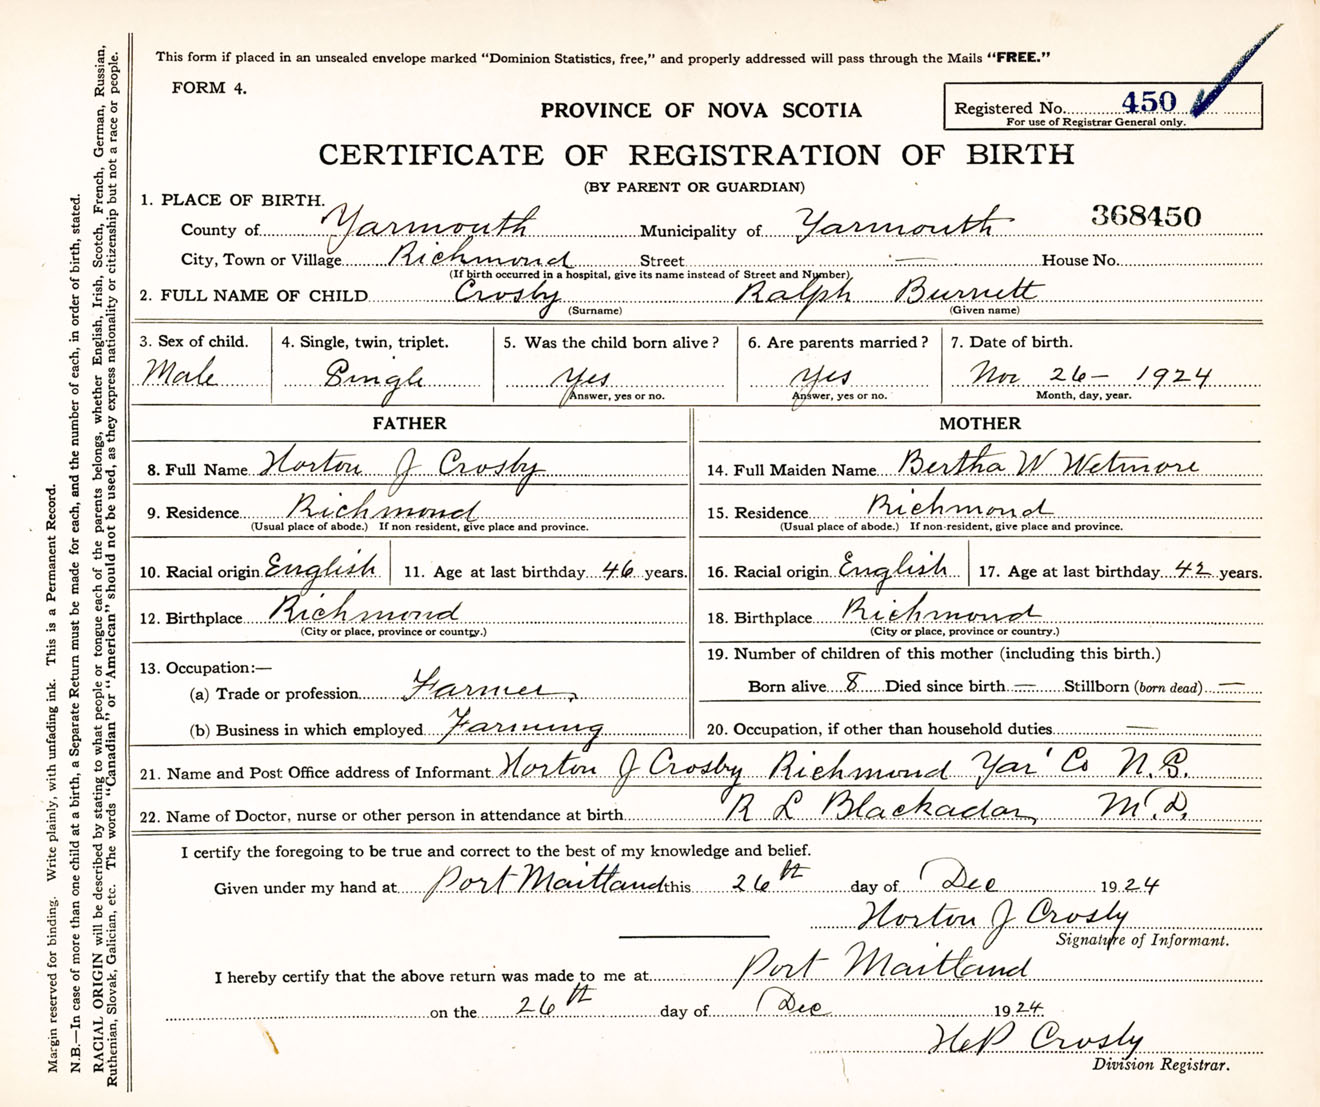 This form if placed in an unsealed envelope marked "Dominion Statistics, free," and properly addressed will pass through the Mails "FREE."
FORM 4.
PROVINCE OF NOVA SCOTIA
Registered No. 450
For use of Registrar General only.
CERTIFICATE OF REGISTRATION OF BIRTH
(BY PARENT OR GUARDIAN)
368450
1. PLACE OF BIRTH.
County of Yarmouth Municipality of Yarmouth
City, Town or Village Richmond Street — House No.
(If birth occurred in a hospital, give its name instead of Street and Number)
2. FULL NAME OF CHILD Crosby Ralph Burnett
(Surname) (Given name)
3. Sex of child. 4. Single, twin, triplet. 5. Was the child born alive? 6. Are parents married? 7. Date of birth.
Male Single Yes Yes Nov 26 – 1924
Answer, yes or no. Answer, yes or no. Month, day, year.
FATHER
8. Full Name Horton J Crosby
9. Residence Richmond
(Usual place of abode.) If non resident, give place and province.
10. Racial origin English 11. Age at last birthday 46 years.
12. Birthplace Richmond
(City or place, province or country.)
13. Occupation:—
(a) Trade or profession Farmer
(b) Business in which employed Farming
MOTHER
14. Full Maiden Name Bertha W Wetmore
15. Residence Richmond
(Usual place of abode.) If non-resident, give place and province.
16. Racial origin English 17. Age at last birthday 42 years.
18. Birthplace Richmond
(City or place, province or country.)
19. Number of children of this mother (including this birth.)
Born alive 8 Died since birth — Stillborn (born dead) —
20. Occupation, if other than household duties —
21. Name and Post Office address of Informant Horton J Crosby Richmond Yar' Co N.S.
22. Name of Doctor, nurse or other person in attendance at birth R L Blackadar, M.D.
I certify the foregoing to be true and correct to the best of my knowledge and belief.
Given under my hand at Port Maitland this 26th day of Dec 1924
Horton J Crosby
Signature of Informant.
I hereby certify that the above return was made to me at Port Maitland
on the 26th day of Dec 1924.
HP Crosby
Division Registrar.
Margin reserved for binding. Write plainly, with unfading ink. This is a Permanent Record.
N.B.—In case of more than one child at a birth, a Separate Return must be made for each, and the number of each, in order of birth, stated.
RACIAL ORIGIN will be described by stating to what people or tongue each of the parents belongs, whether English, Irish, Scotch, French, German, Russian,
Ruthenian, Slovak, Galician, etc. The words "Canadian" or "American" should not be used, as they express nationality or citizenship but not a race or people.